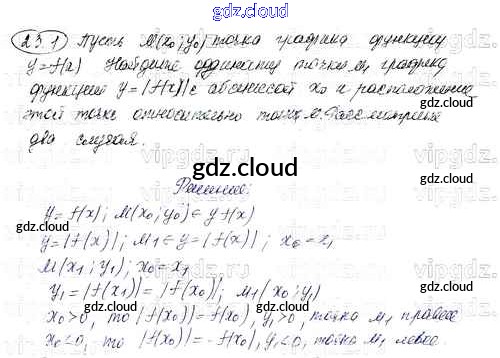 gdz.cloud
23.1 Пусть M(x₀; y₀) точка графика функции
y=f(x) Найдите ординату точки M₁ графика
функции y=|f(x)| с абсциссой x₀ и расположение
этой точки относительно точки M. Рассмотрите
два случая.
gdz.cloud
Решение:
gdz.cloud
y=f(x); M(x₀; y₀) ∈ y f(x)
y=|f(x)|; M₁ ∈ y=|f(x)|; x₀=x₁
M(x₁; y₁); x₀=x₁
y₁=|f(x₁)|=|f(x₀)|; M₁(x₀; y₁)
x₀>0, то |f(x₀)|=f(x₀), y₁>0, точка M₁ правее
x₀<0, то |f(x₀)|=-f(x₀), y₁<0, точка M₁ левее.
gdz.cloud